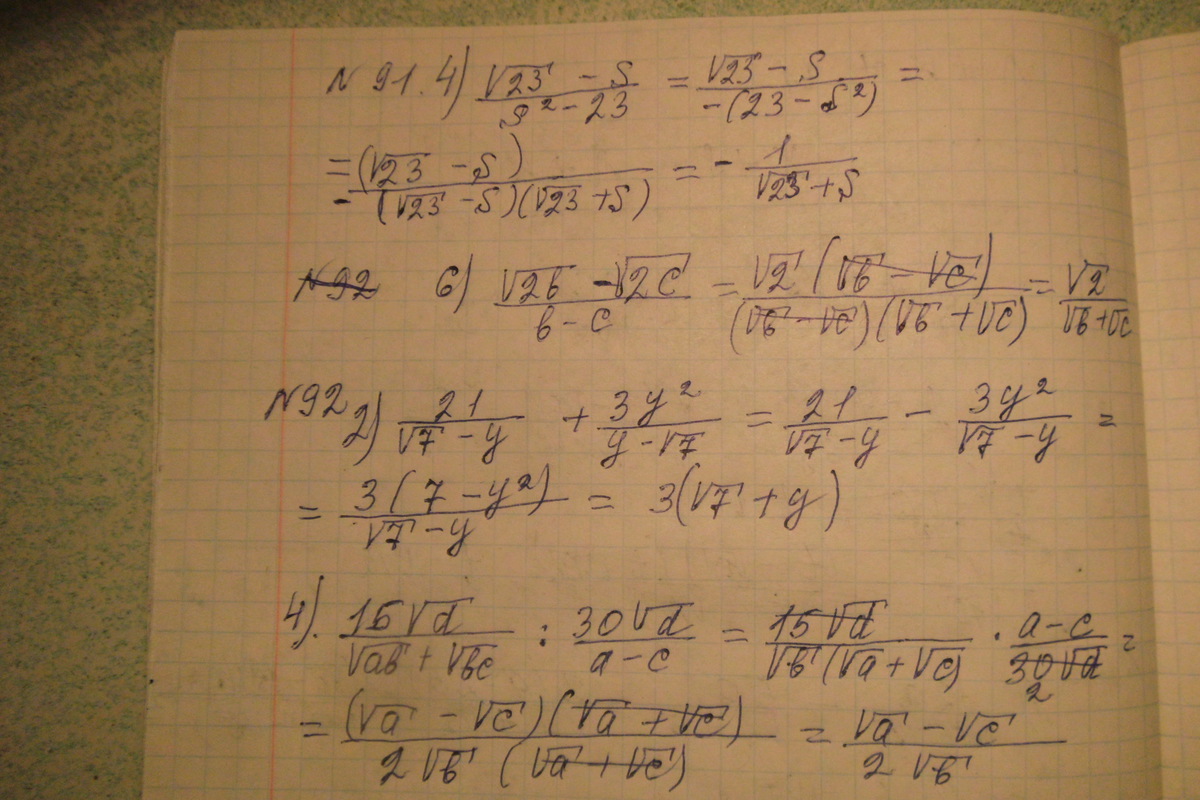 N 91. 4) (√23 - 5)/(5² - 23) = (√23 - 5)/(-(23 - 5²)) =
= (√23 - 5)/(-(√23 - 5)(√23 + 5)) = - 1/(√23 + 5)
N92 6) (√2b - √2c)/(b - c) = √2(√b - √c)/((√b - √c)(√b + √c)) = √2/(√b + √c)
N92 2) 21/(√7 - y) + 3y²/(y - √7) = 21/(√7 - y) - 3y²/(√7 - y) =
= 3(7 - y²)/(√7 - y) = 3(√7 + y)
4). 15√d/(√ab + √bc) : 30√d/(a - c) = 15√d/(√b(√a + √c)) · (a - c)/(30√d) =
2
= (√a - √c)(√a + √c)/(2√b(√a + √c)) = (√a - √c)/(2√b)